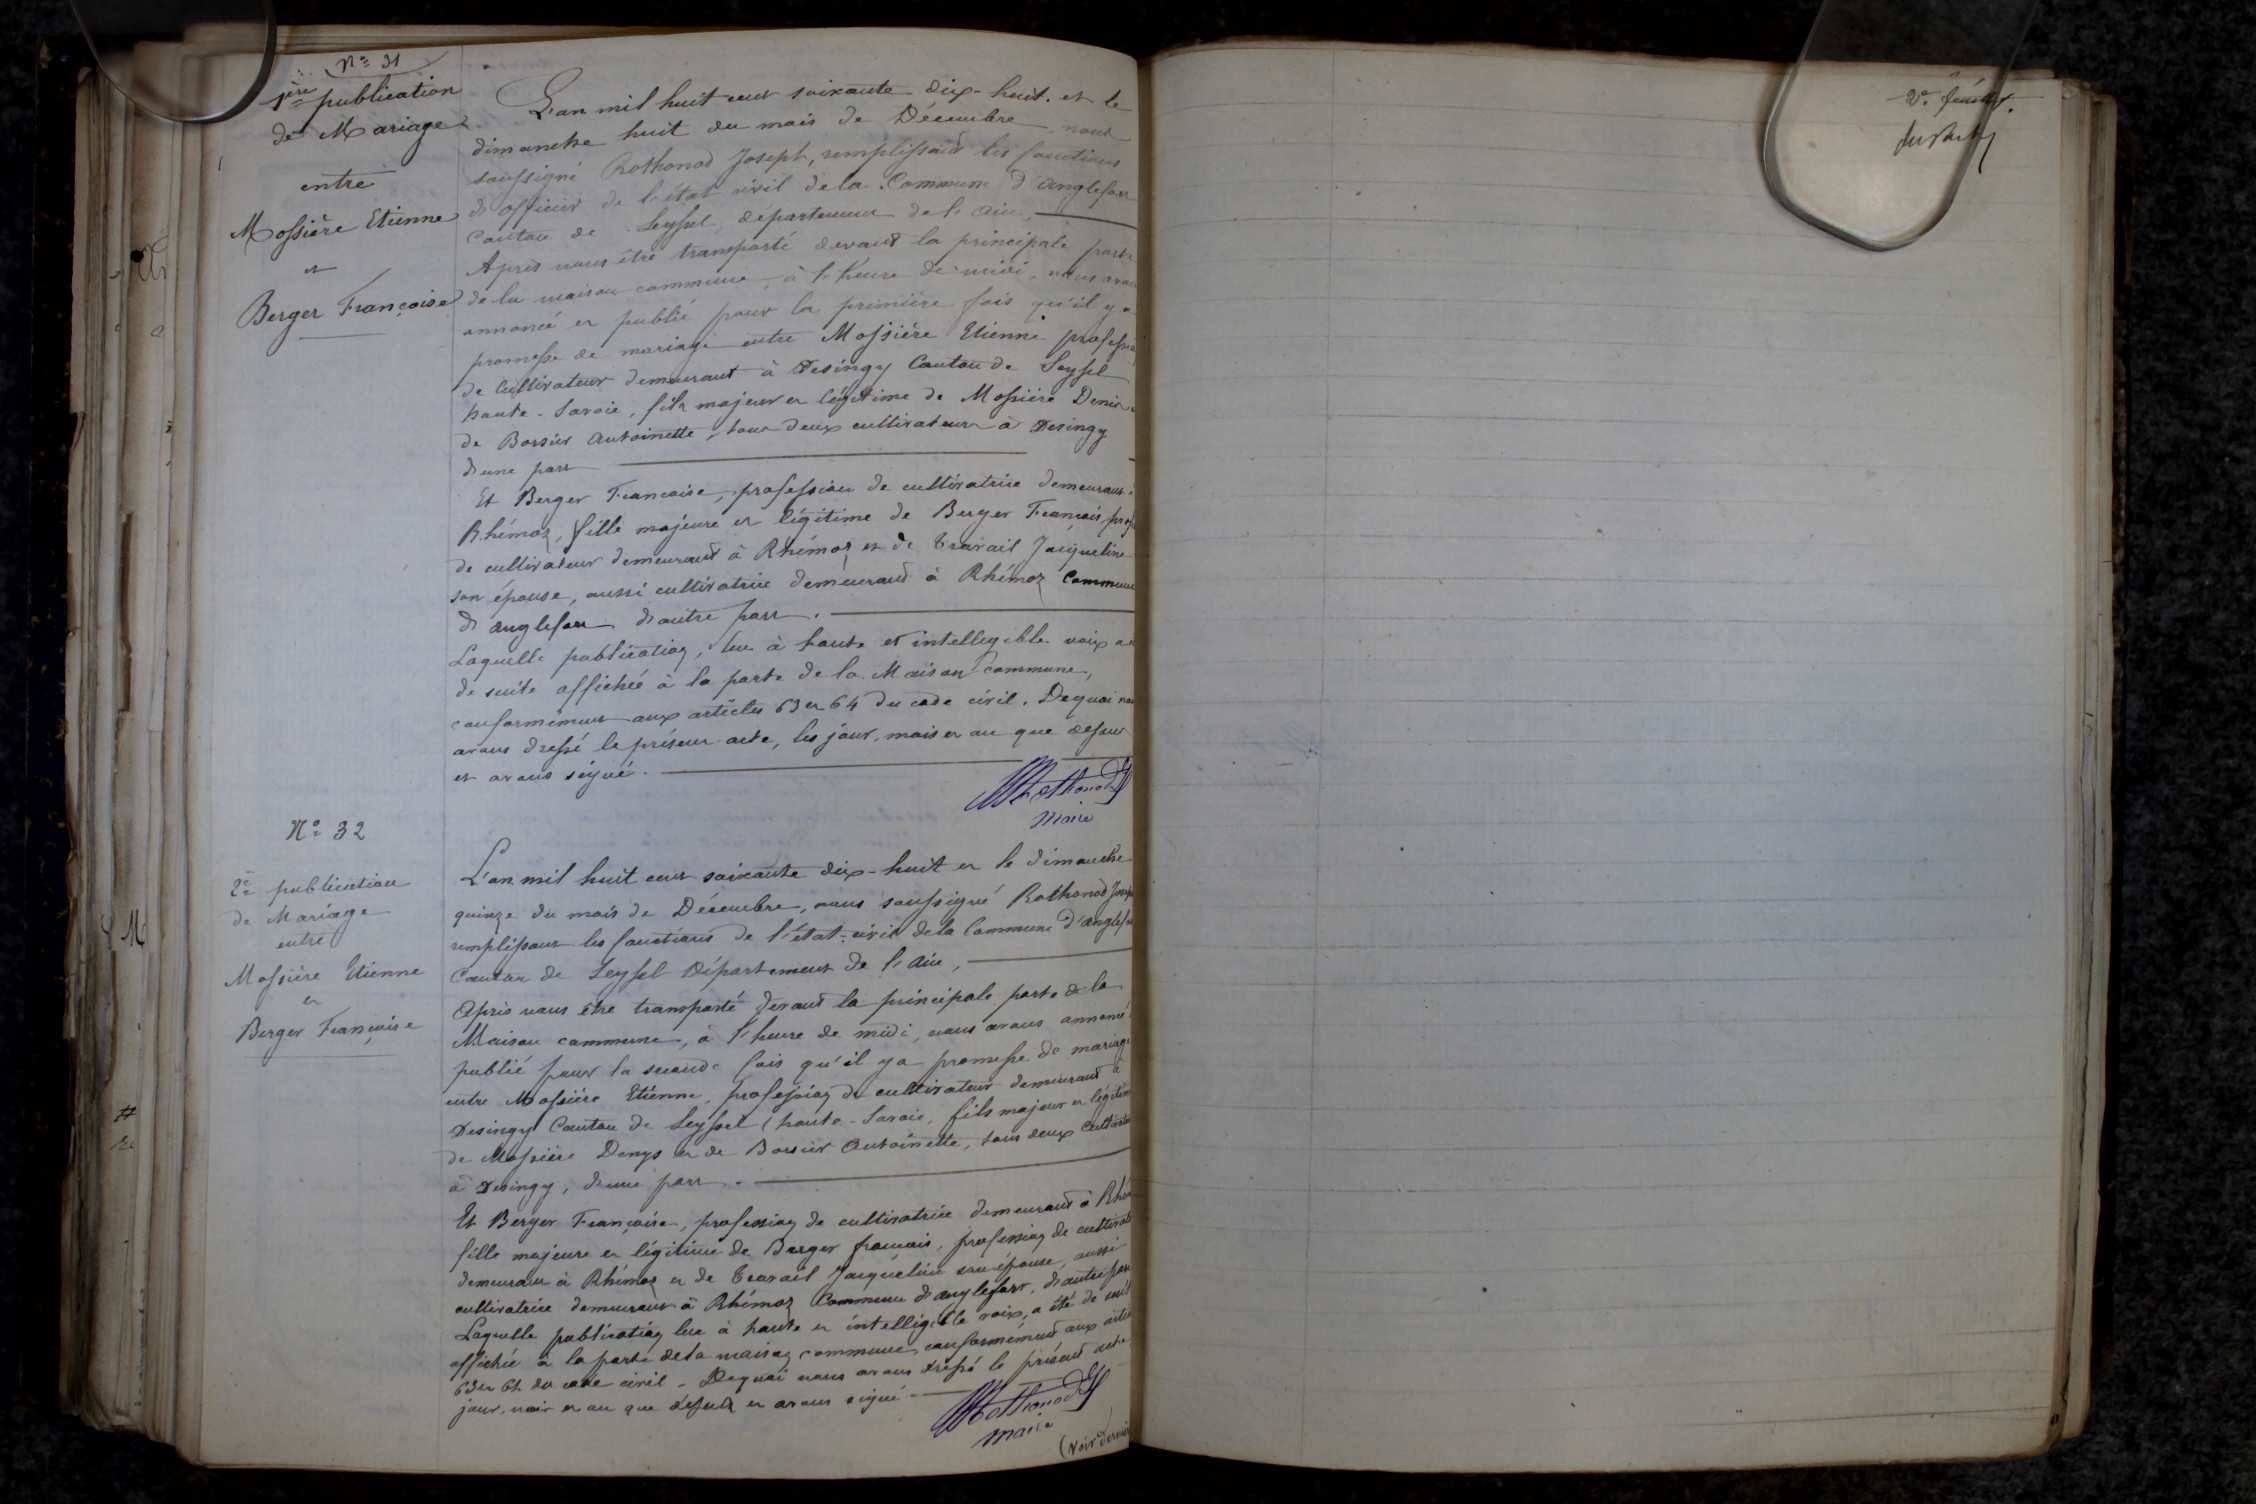 Nº 31
1ère publication
de Mariage
entre
Mossière Etienne
et
Berger Françoise
L'an mil huit cent soixante-dix-huit. et le
dimanche huit du mois de Décembre nous
soussigné Rothonod Joseph, remplissant les fonctions
d'officier de l'état civil de la Commune d'Anglefort
Canton de Seyssel, département de l'Ain,
Après nous être transporté devant la principale porte
de la maison commune, à l'heure de midi, nous avons
annoncé et publié pour la première fois qu'il y a
promesse de mariage entre Mossière Etienne profession
de cultivateur demeurant à Desingy Canton de Seyssel
haute-Savoie, fils majeur et légitime de Mossière Denis
de Bossier Antoinette, tous deux cultivateurs à Desingy
d'une part
Et Berger Francoise, profession de cultivatrice demeurant à
Rhémoz, fille majeure et légitime de Berger François, prof
de cultivateur demeurant à Rhémoz et de Travail Jacqueline
son épouse, aussi cultivatrice demeurant à Rhémoz Commune
d'Anglefort d'autre part.
Laquelle publication, lue à haute et intellegible voix a
de suite affichée à la porte de la Maison commune,
conformément aux articles 63 et 64 du code civil. Dequoi nous
avons dressé le présent acte, les jour, mois et an que dessus
et avons signé.
Rothonod J
Maire
Nº 32
2e publication
de Mariage
entre
Mossière Etienne
et
Berger Françoise
L'an mil huit cent soixante dix-huit et le dimanche
quinze du mois de Décembre, nous soussigné Rothonod Joseph
remplissant les fonctions de l'état-civil de la Commune d'Anglefort
Canton de Seyssel Département de l'Ain,
Après nous être transporté devant la principale porte de la
Maison commune, à l'heure de midi, nous avons annoncé
publié pour la seconde fois qu'il y a promesse de mariage
entre Mossière Etienne, profession de cultivateur demeurant à
Desingy Canton de Seyssel (haute-Savoie, fils majeur et légitime
de Mossière Denys et de Bossier Antoinette, tous deux cultivateurs
à Desingy, d'une part.
Et Berger Françoise, profession de cultivatrice demeurant à Rhém
fille majeure et légitime de Berger françois, profession de cultivat
demeurant à Rhémoz et de Travail Jacqueline son épouse, aussi
cultivatrice demeurant à Rhémoz Commune d'Anglefort, d'autre part
Laquelle publication lue à haute et intelligible voix, a été de suite
affichée à la porte de la maison commune, conformément aux articles
63 et 64 du code civil. Dequoi nous avons dressé le présent acte
jour, mois et an que dessus et avons signé.
Rothonod J
Maire
(voir dernier
2e feuillet.